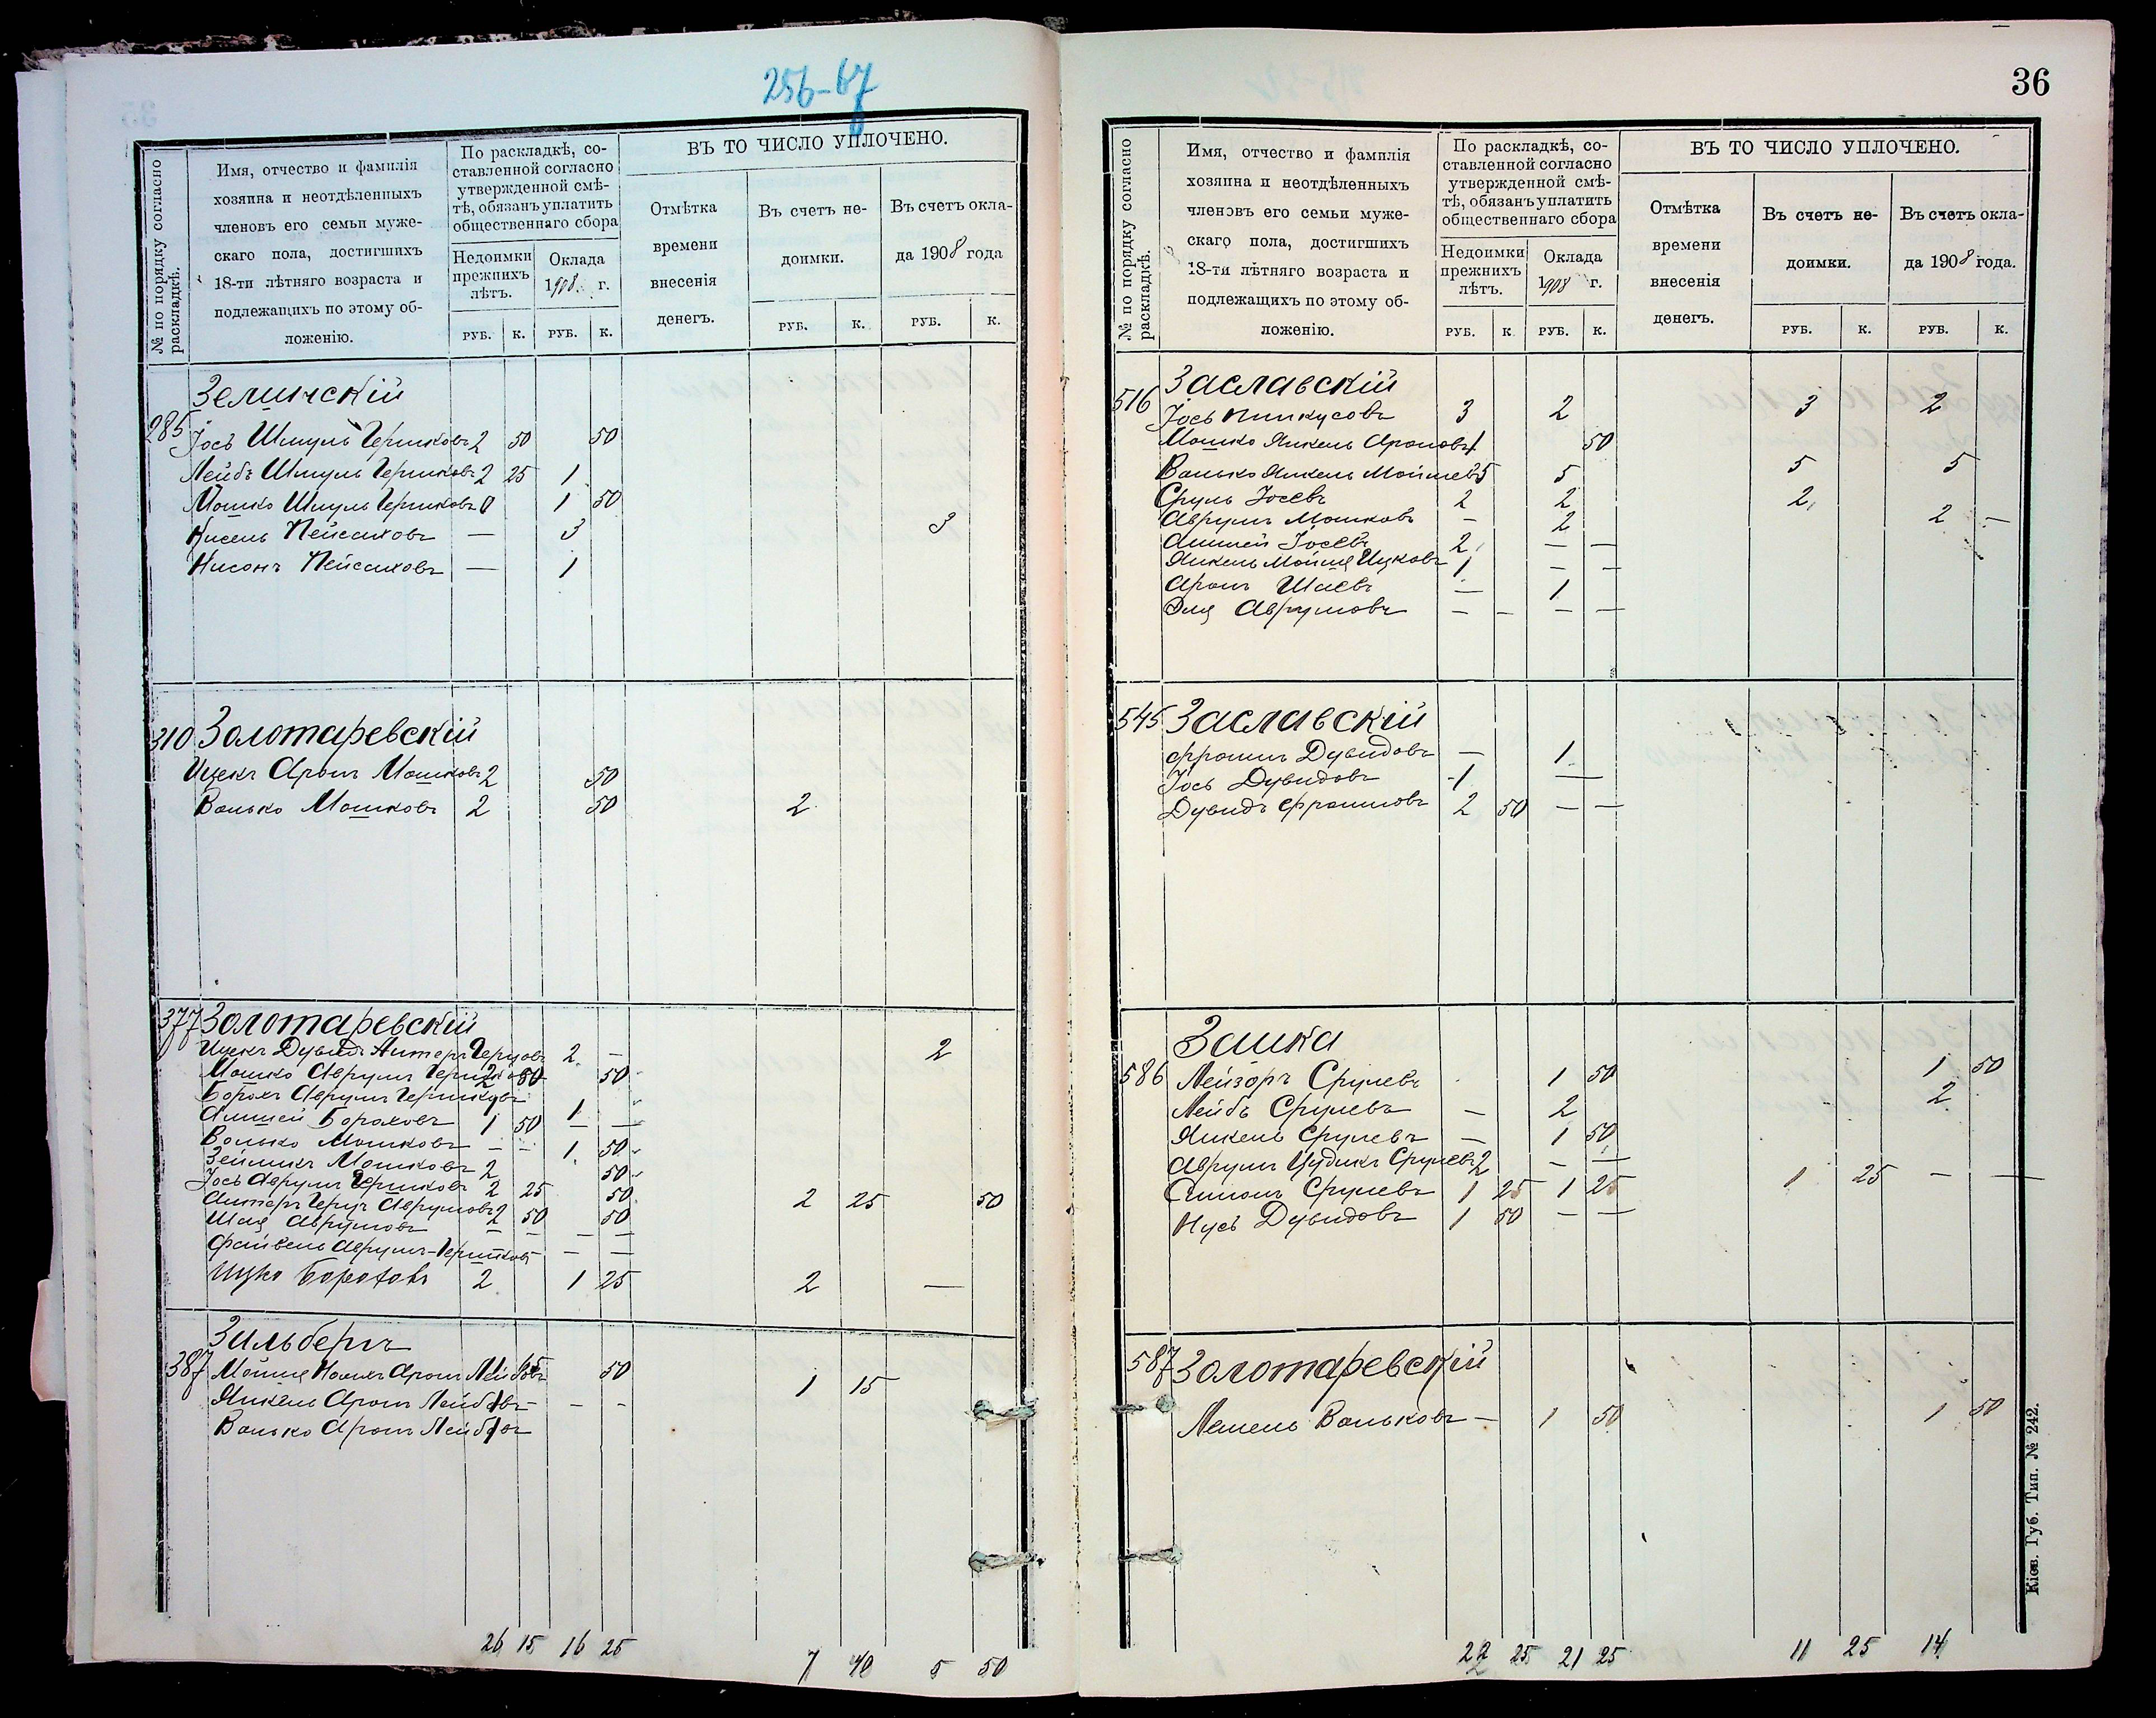 256-67
№ по порядку согласно раскладкѣ.
Имя, отчество и фамилія
хозяина и неотдѣленныхъ
членовъ его семьи муже-
скаго пола, достигшихъ
18-ти лѣтняго возраста и
подлежащихъ по этому об-
ложенію.
По раскладкѣ, со-
ставленной согласно
утвержденной смѣ-
тѣ, обязанъ уплатить
общественнаго сбора
Недоимки
прежнихъ
лѣтъ.
Оклада
1908 г.
РУБ. К. РУБ. К.
ВЪ ТО ЧИСЛО УПЛОЧЕНО.
Отмѣтка
времени
внесенія
денегъ.
Въ счетъ не-
доимки.
Въ счетъ окла-
да 1908 года
РУБ. К. РУБ. К.
Зелинскій
285 Іосъ Шмуль Гершковъ 2 50 50
Лейбъ Шмуль Гершковъ 2 25 1
Мошко Шмуль Гершковъ 1 50
Кисель Пейсаховъ — 3 3
Нисонъ Пейсаховъ — 1
310 Золотаревскій
Ицекъ Аронъ Мошковъ 2 50
Волько Мошковъ 2 50 2
377 Золотаревскій
Ицекъ Дувидъ Антеръ Герцовъ 2 — 2
Мошко Аврумъ Гершковъ 2 50 50
Борохъ Аврумъ Гершковъ 1
Аншей Бороховъ 1 50 — —
Волько Мошковъ — — 1 50
Зейликъ Мошковъ 2 50
Іосъ Аврумъ Гершковъ 2 25 50 2 25 50
Антеръ Герцъ Аврумовъ 2 50 50
Шая Аврумовъ — — — —
Файвель Аврумъ-Гершковъ — —
Ицко Бороховъ 2 1 25 2 —
Зильберъ
387 Мойше Аронъ 50 1 15
Янкель Аронъ Лейбовъ — — -
Волько Аронъ Лейбовъ
26 15 16 25 7 40 5 50
36
№ по порядку согласно раскладкѣ.
Имя, отчество и фамилія
хозяина и неотдѣленныхъ
членовъ его семьи муже-
скаго пола, достигшихъ
18-ти лѣтняго возраста и
подлежащихъ по этому об-
ложенію.
По раскладкѣ, со-
ставленной согласно
утвержденной смѣ-
тѣ, обязанъ уплатить
общественнаго сбора
Недоимки
прежнихъ
лѣтъ.
Оклада
1908 г.
РУБ. К. РУБ. К.
ВЪ ТО ЧИСЛО УПЛОЧЕНО.
Отмѣтка
времени
внесенія
денегъ.
Въ счетъ не-
доимки.
Въ счетъ окла-
да 1908 года.
РУБ. К. РУБ. К.
Заславскій
516 Іосъ Пинкусовъ 3 2 3 2
Мошко Янкель Ароновъ 1 50
Волько Янкель Мойшев 5 5 5 5
Сруль Іосевъ 2 2 2
Аврумъ Мошковъ — 2 2 —
Аншей Іосевъ 2 — —
Янкель Мойше Ицковъ 1 — —
Аронъ Шаевъ — 1
Эля Аврумовъ — — — —
545 Заславскій
Фроимъ Дувидовъ — 1
Іосъ Дувидовъ 1 —
Дувидъ Фроимовъ 2 50 — —
Зашка
586 Лейзоръ Срулевъ 1 50 1 50
Лейбъ Срулевъ — 2 2
Янкель Срулевъ — 1 50
Аврумъ Срулевъ 2 — —
Симонъ Срулевъ 1 25 1 25 1 25 — —
Нусъ Дувидовъ 1 50 — —
587 Золотаревскій
Мешель Вольковъ — 1 50 1 50
22 25 21 25 11 25 14
Кіев. Губ. Тип. № 242.